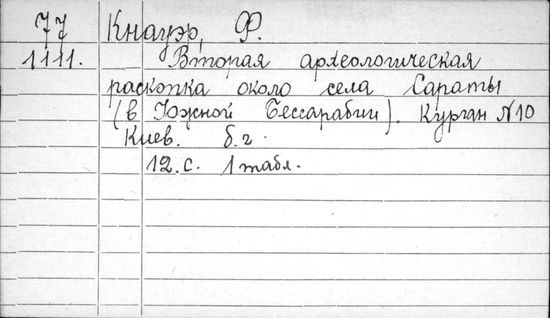 77 Кнауэр, Ф.
1111. Вторая археологическая
раскопка около села Сараты
(в Южной Бессарабии). Курган № 10
Киев. б.г.
12.с. 1 табл.